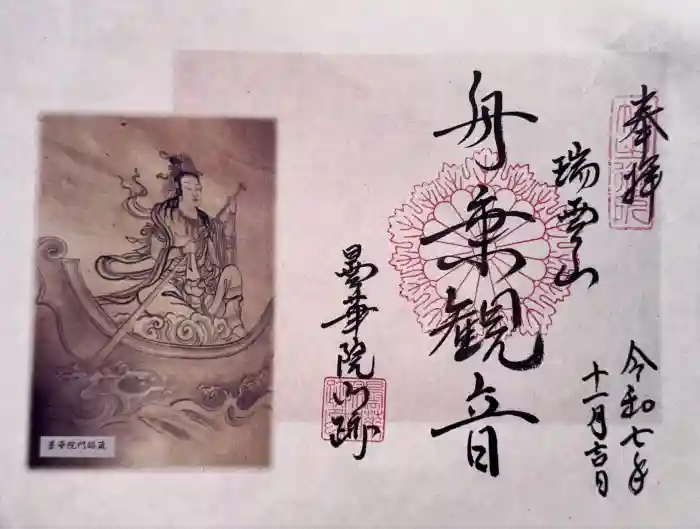 奉拝
瑞雲山
舟乗観音
曇華院門跡
令和七年
十一月吉日
曇華院門跡蔵